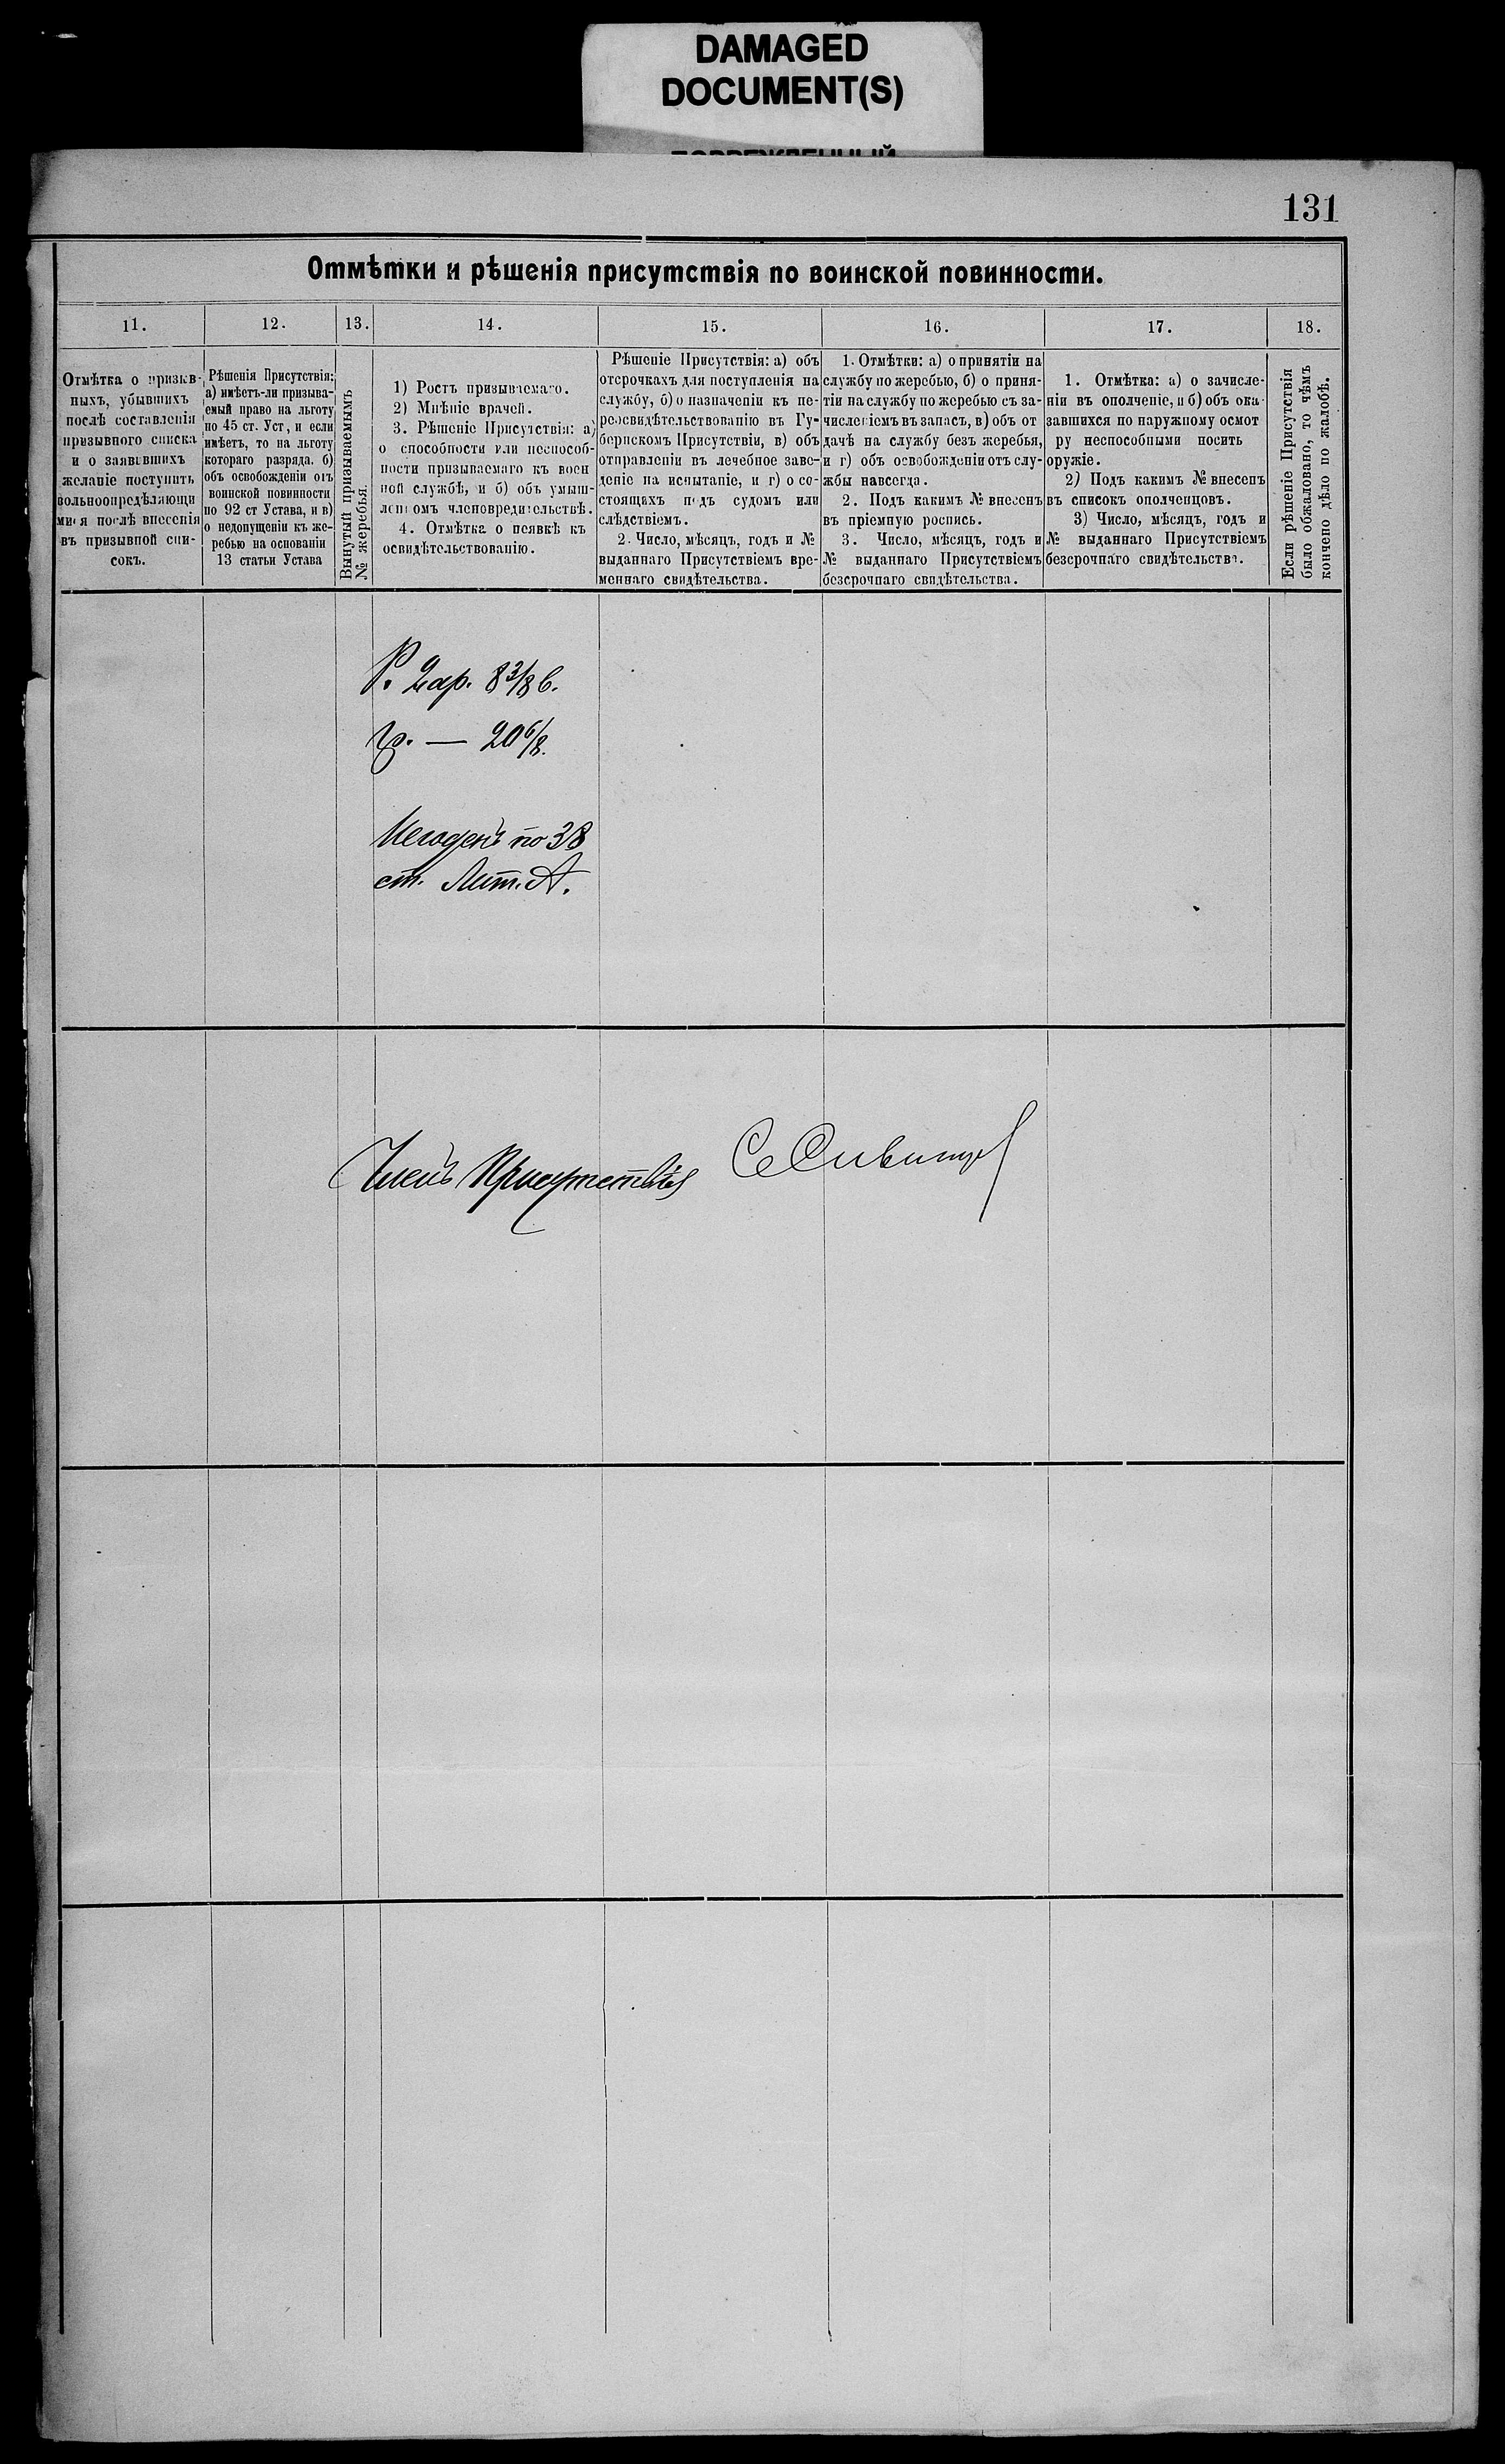 DAMAGED
DOCUMENT(S)
131
Отмѣтки и рѣшенія присутствія по воинской повинности.
11.
12.
13.
14.
15.
16.
17.
18.
Отмѣтка о призыв-
ныхъ, убывшихъ
послѣ составленія
призывного списка
и о заявившихъ
желаніе поступить
вольноопредѣляющи
мися послѣ внесенія
въ призывной спи-
сокъ.
Рѣшенія Присутствія:
а) имѣетъ-ли призыва-
емый право на льготу
по 45 ст. Уст, и если
имѣетъ, то на льготу
котораго разряда. б)
объ освобожденіи отъ
воинской повинности
по 92 ст Устава, и в)
о недопущеніи къ же-
ребью на основаніи
13 статьи Устава
Вынутый призываемымъ
№ жеребья.
1) Ростъ призываемаго.
2) Мнѣніе врачей.
3. Рѣшеніе Присутствія: а)
о способности или неспособ-
ности призываемаго къ воен
ной службѣ, и б) объ умыш-
ленномъ членовредительствѣ.
4. Отмѣтка о неявкѣ къ
освидѣтельствованію.
Рѣшеніе Присутствія: а) объ
отсрочкахъ для поступленія на
службу, б) о назначеніи къ пе-
реосвидѣтельствованію въ Гу-
бернскомъ Присутствіи, в) объ
отправленіи въ лечебное заве-
деніе на испытаніе, и г) о со-
стоящахъ подъ судомъ или
слѣдствіемъ.
2. Число, мѣсяцъ, годъ и №
выданнаго Присутствіемъ вре-
меннаго свидѣтельства.
1. Отмѣтки: а) о принятіи на
службу по жеребью, б) о приня-
тіи на службу по жеребью съ за-
численіемъ въ запасъ, в) объ от
дачѣ на службу безъ жеребья,
и г) объ освобожденіи отъ слу-
жбы навсегда.
2. Подъ какимъ № внесенъ
въ пріемную роспись.
3. Число, мѣсяцъ, годъ и
№ выданнаго Присутствіемъ
безсрочнаго свидѣтельства.
1. Отмѣтка: а) о зачисле-
ніи въ ополченіе, и б) объ ока-
завшихся по наружному осмот
ру неспособными носить
оружіе.
2) Подъ какимъ № внесенъ
въ списокъ ополченцовъ.
3) Число, мѣсяцъ, годъ и
№ выданнаго Присутствіемъ
безсрочнаго свидѣтельства.
Если рѣшеніе Присутствія
было обжаловано, то чѣмъ
кончено дѣло по жалобѣ.
Р. 2 ар. 8 3/8 в.
гр. — 20 6/8.
Негоденъ по 38
ст. Лит. А.
Членъ Присутствія